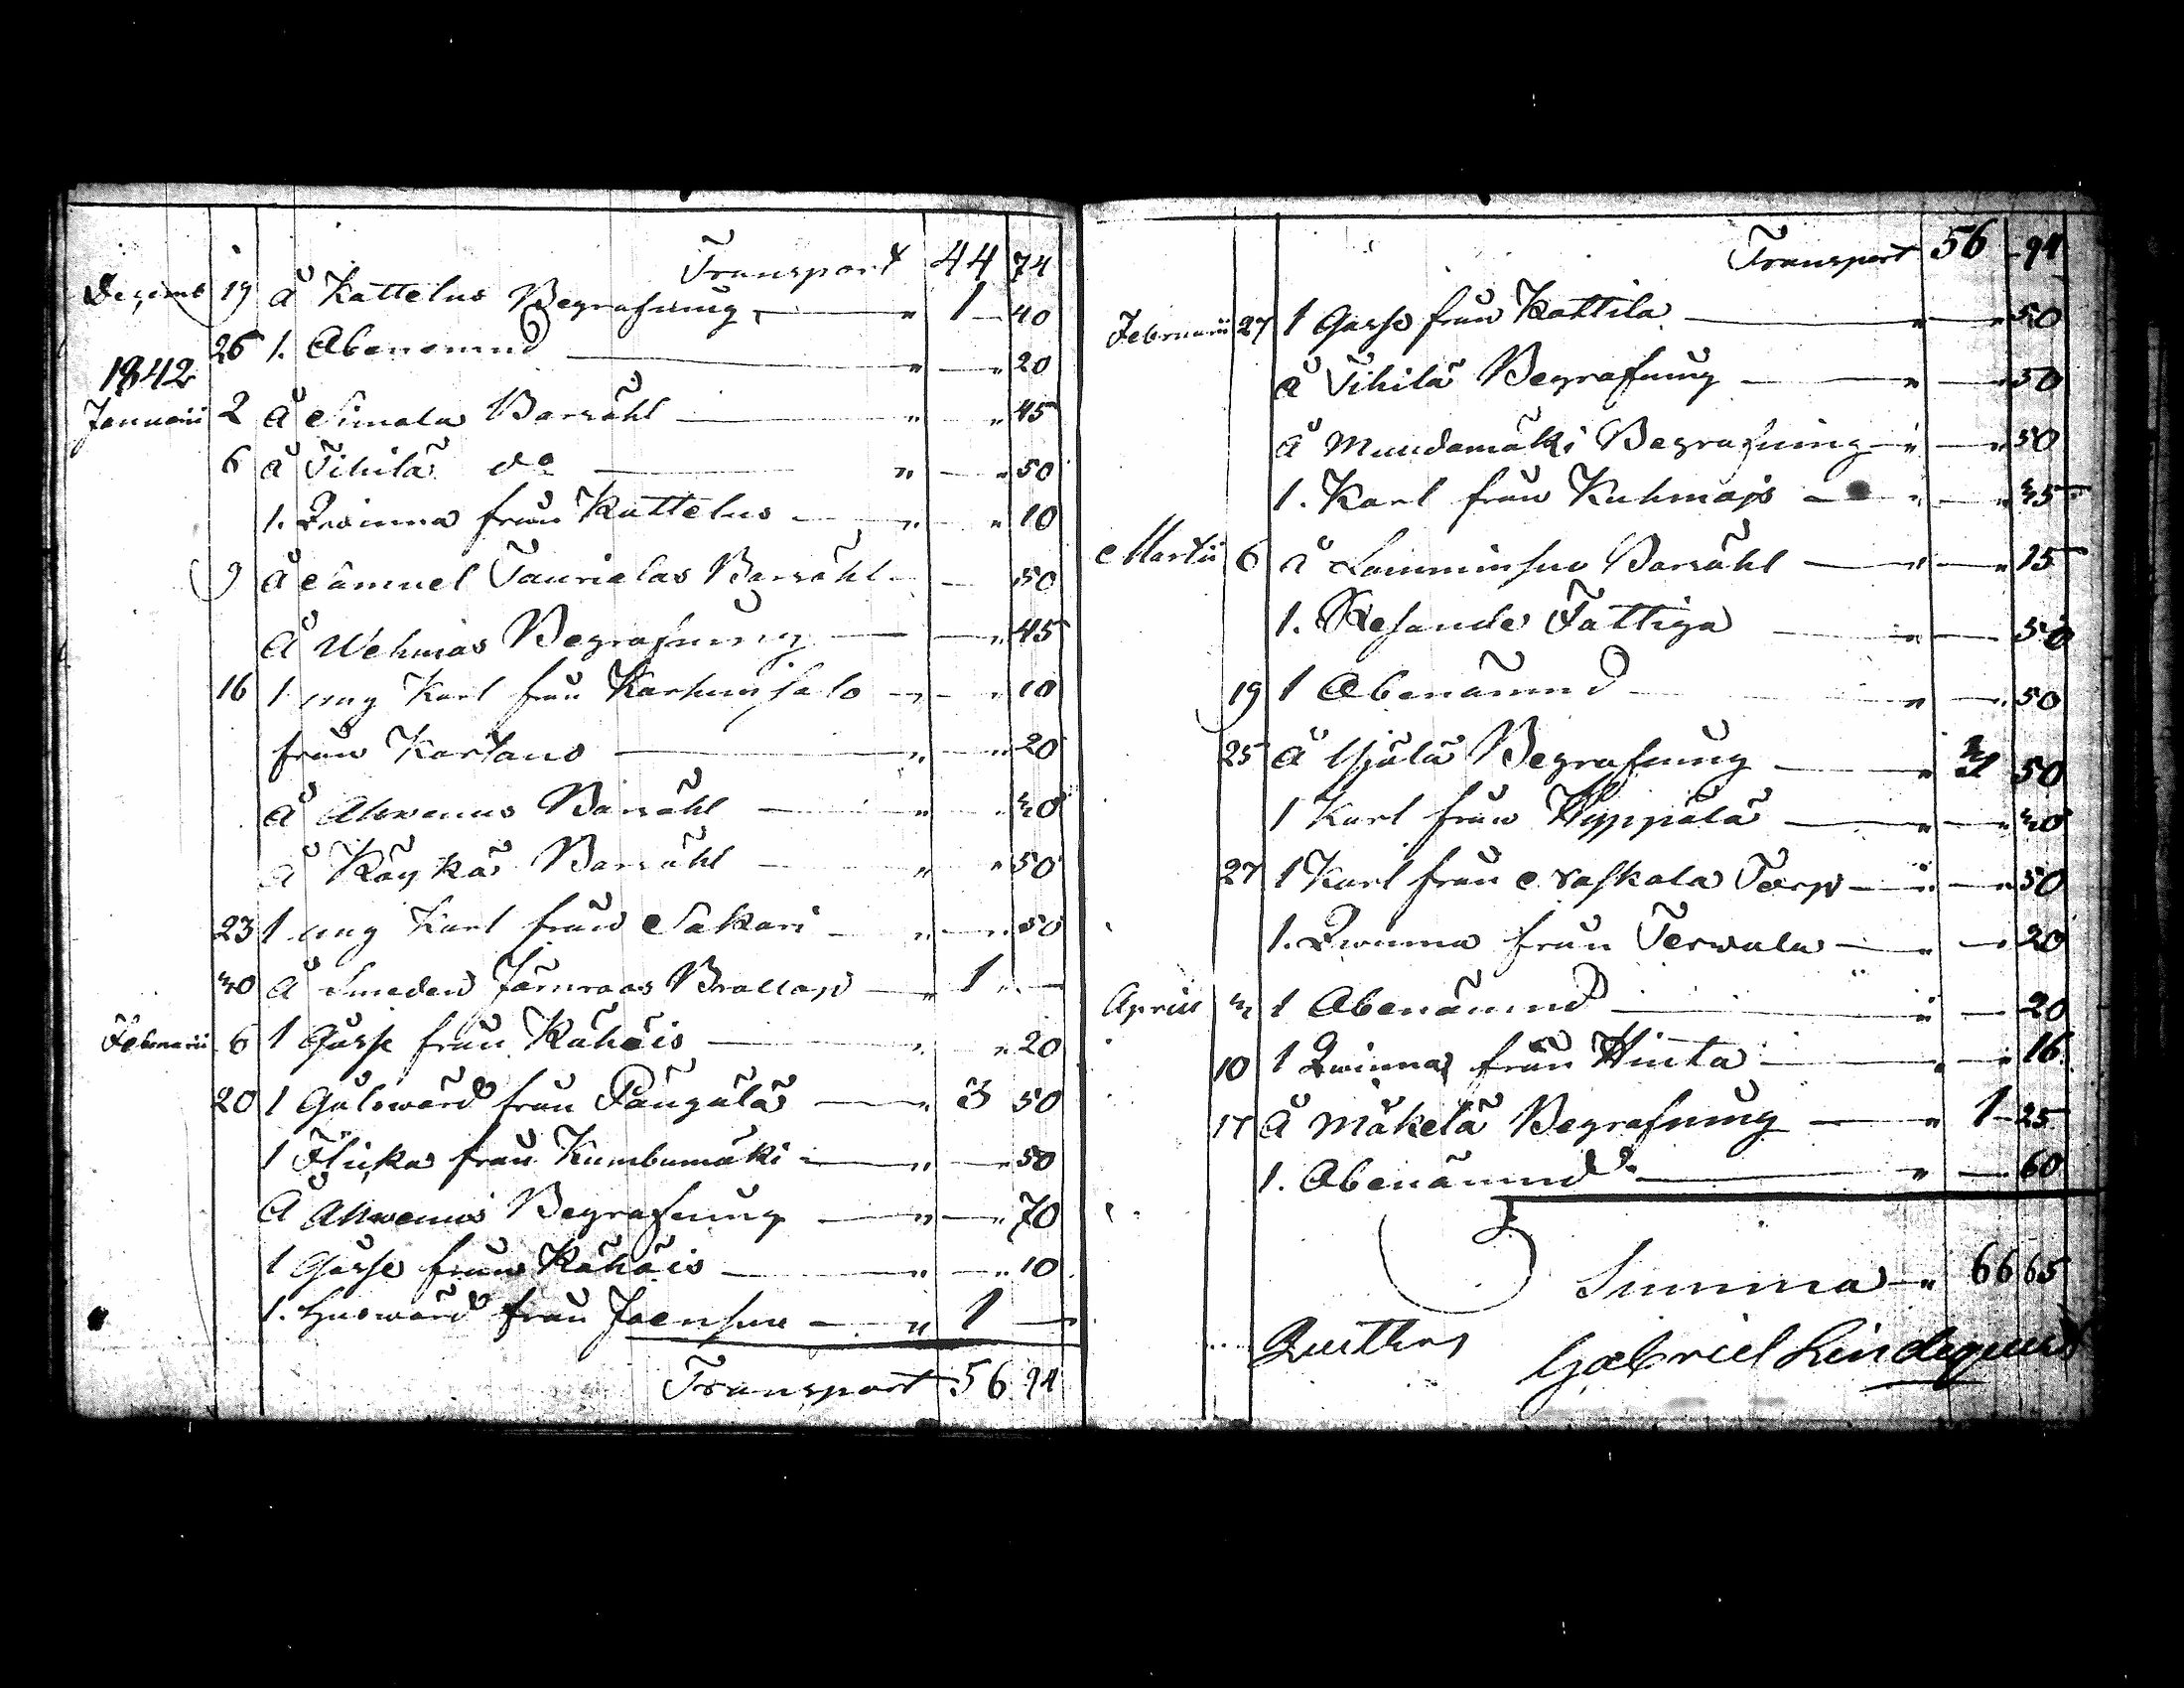 Transport 44 74
Decemb 19 å Kattelus Begrafning — " 1 — 40
26 1. Obenämnd — " — " 20
1842
Januarii 2 å Simola Barnöhl — " — " 45
6 å Tihilä do — " — " 50
1. Qwinna från Kattelus — " — " 10
9 å Samuel Taurialas Barnöhl — 50
å Wehmas Begrafning — — " 45
16 1 ung Karl från Karhunsalo — " — " 10
från Kartano — " — " 20
å Ahvenus Barnöhl — " — " 30
å Käykä Barnöhl — " — " 50
23 1 ung Karl från Sakari — " — " 50
30 å Smeden Bröllop — " 1 " —
Februarii 6 1 Gosse från Kähöis — " — " 20
20 1 från Pangälä — " 3 50
1 Flicka från Kumbumäki — " — 50
å Ahvenus Begrafning — " — " 70
1 Gosse från Kähöis — " — " 10
1. Huswärd från Joensuu — " 1 —
Transport 56 94
Transport 56 — 94
Februarii 27 1 Gosse från Kattila — " — " 50
å Tihilä Begrafning — " — " 50
å Mundamäki Begrafning — " — " 50
1. Karl från Kuhmajs — " — " 35
Martii 6 å Lamminsuu Barnöhl — " — " 15
1. Resande Fattiga — " — 50
19 1 Obenämnd — " — " 50
25 å Begrafning — " 50
1 Karl från Hyppälä — " — " 30
27 1 Karl från Torp — " — " 50
1. Qwinna från Terwala — " — 20
Aprill 3 1 Obenämnd — " — 20
10 1 Qwinna från Hinta — " — " 16
17 å Mäkelä Begrafning — " 1 — 25
1. Obenämnd — " — 60
Summa — " 66 65
Gabriel Lindequist